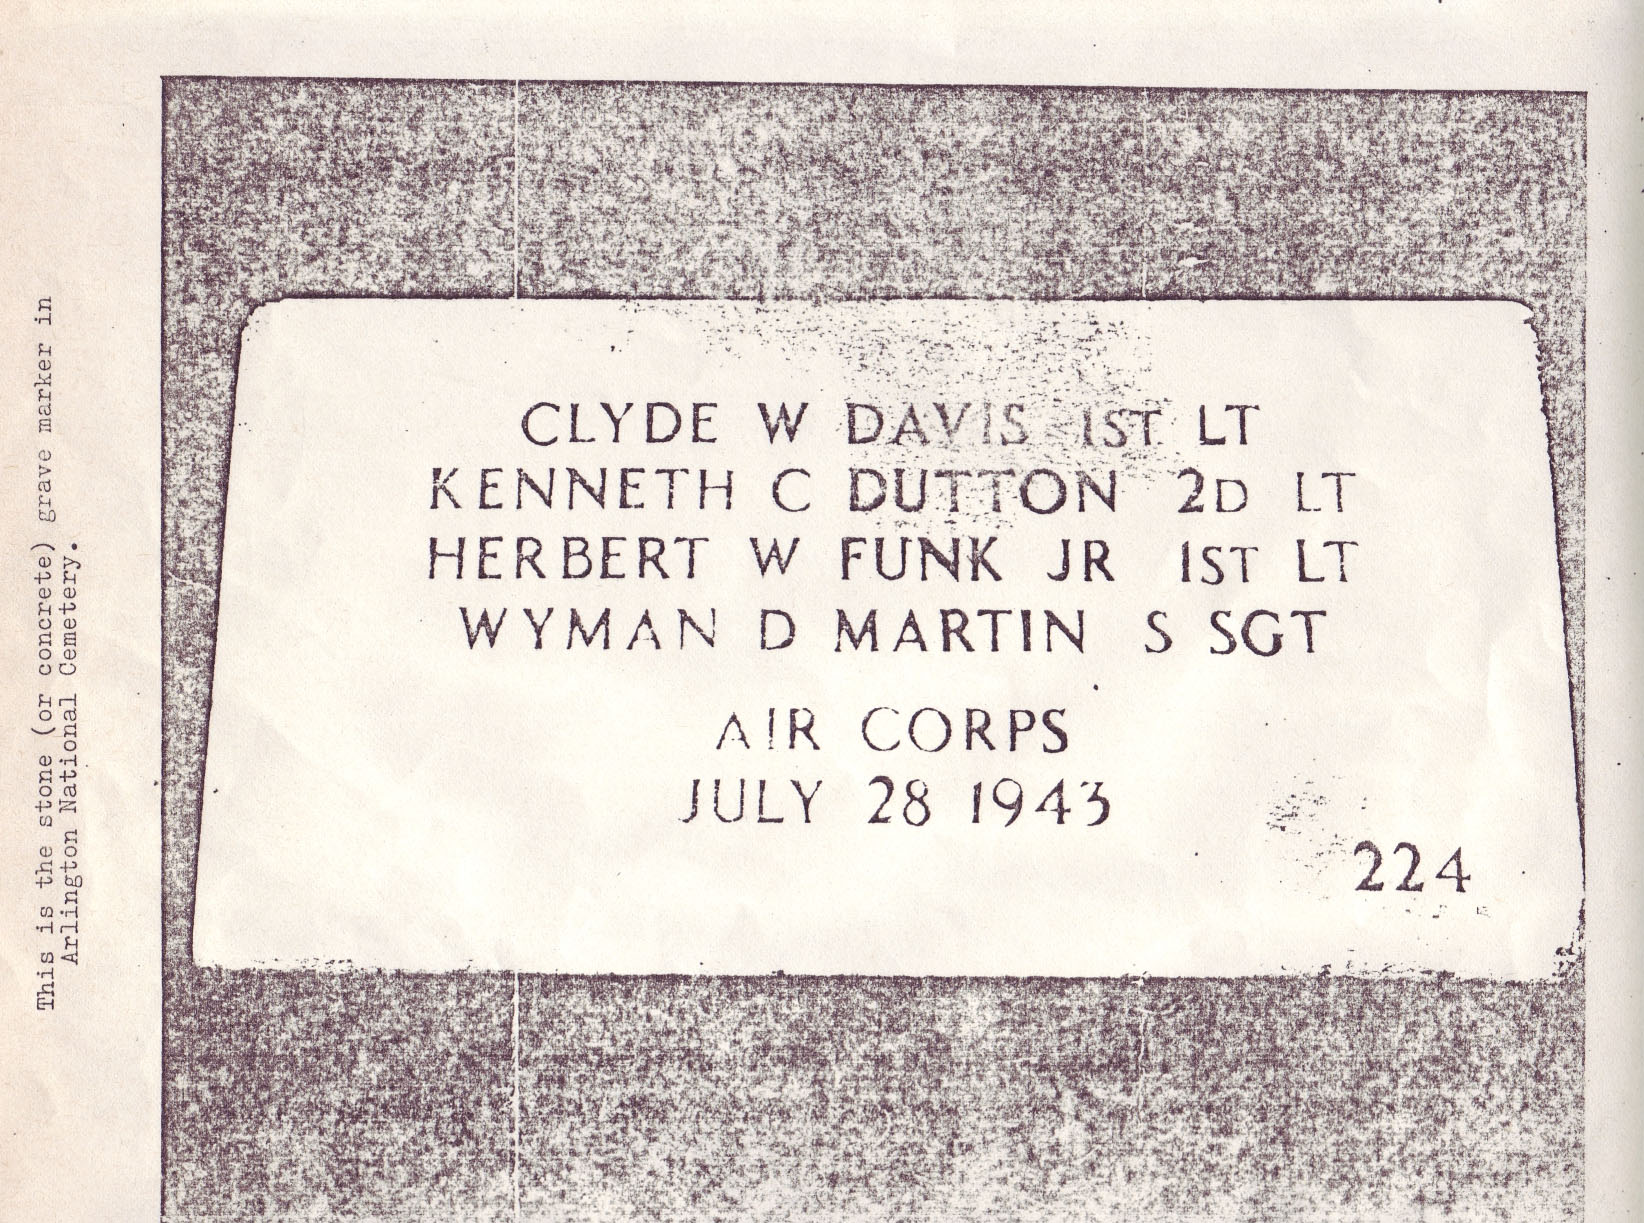 This is the stone (or concrete) grave marker in
Arlington National Cemetery.
CLYDE W DAVIS 1ST LT
KENNETH C DUTTON 2D LT
HERBERT W FUNK JR 1ST LT
WYMAN D MARTIN S SGT
AIR CORPS
JULY 28 1943
224